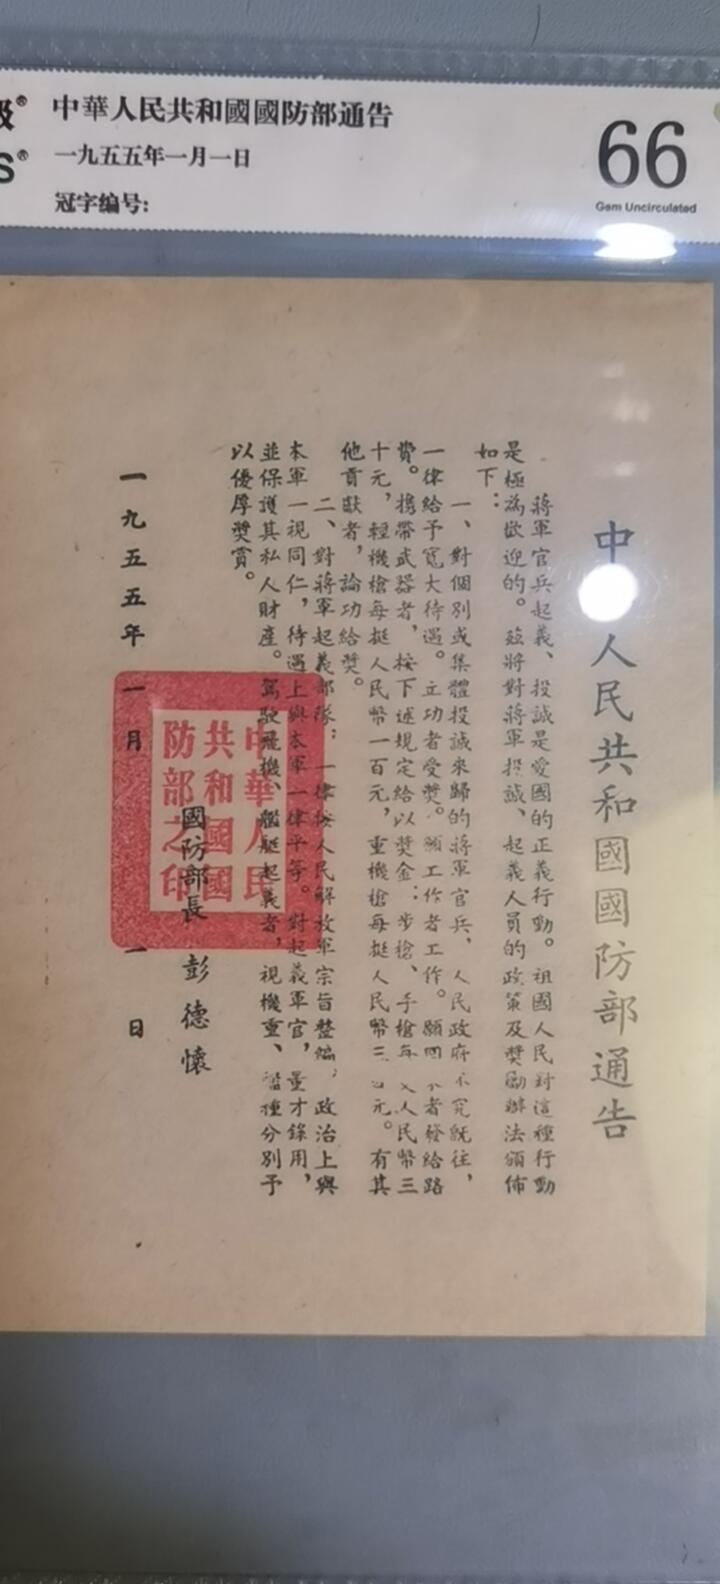 中華人民共和國國防部通告
一九五五年一月一日
冠字编号:
S®
66
Gem Uncirculated
中人民共和國國防部通告
蔣軍官兵起義、投誠是愛國的正義行動。祖國人民對這種行動
是極為歡迎的。茲將對蔣軍投誠、起義人員的政策及獎勵辦法頒佈
如下：
一、對個別或集體投誠來歸的蔣軍官兵，人民政府不究既往，
一律給予寬大待遇。立功者受獎。願工作者工作。願回者發給路
費。攜帶武器者，按下述規定給以獎金：步槍、手槍每人民幣三
十元，輕機槍每挺人民幣一百元，重機槍每挺人民幣三元。有其
他貢獻者，論功給獎。
二、對蔣軍起義部隊，一律按人民解放軍宗旨整編，政治上與
本軍一視同仁，待遇上與本軍一律平等。對起義軍官，量才錄用，
並保護其私人財產。駕駛飛機、艦艇起義者，視機重、艦種分別予
以優厚獎賞。
國防部長 彭德懷
一九五五年一月一日
中華人民
共和國國
防部之印